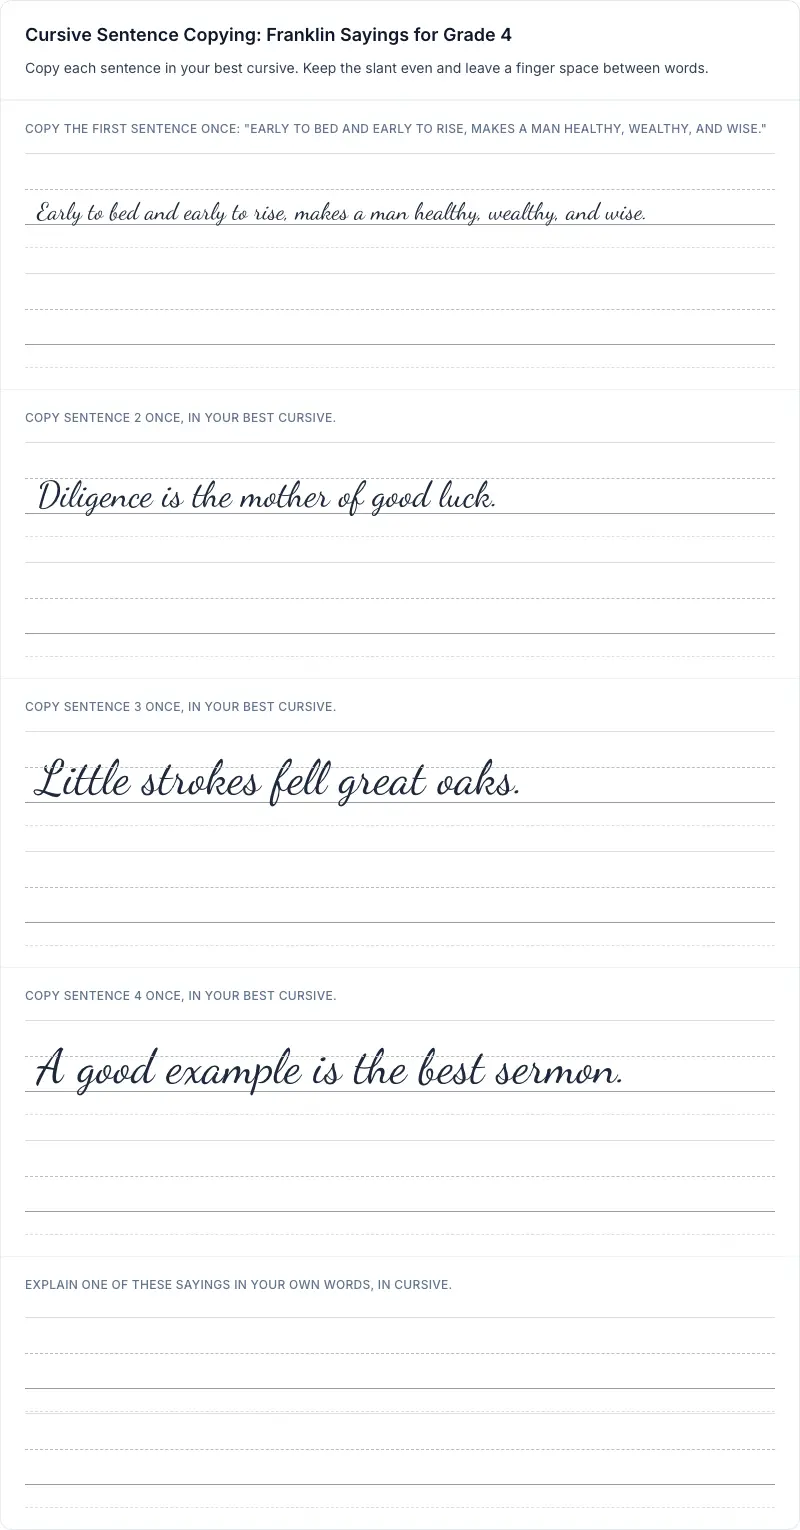 Cursive Sentence Copying: Franklin Sayings for Grade 4
Copy each sentence in your best cursive. Keep the slant even and leave a finger space between words.
COPY THE FIRST SENTENCE ONCE: "EARLY TO BED AND EARLY TO RISE, MAKES A MAN HEALTHY, WEALTHY, AND WISE."
Early to bed and early to rise, makes a man healthy, wealthy, and wise.
COPY SENTENCE 2 ONCE, IN YOUR BEST CURSIVE.
Diligence is the mother of good luck.
COPY SENTENCE 3 ONCE, IN YOUR BEST CURSIVE.
Little strokes fell great oaks.
COPY SENTENCE 4 ONCE, IN YOUR BEST CURSIVE.
A good example is the best sermon.
EXPLAIN ONE OF THESE SAYINGS IN YOUR OWN WORDS, IN CURSIVE.